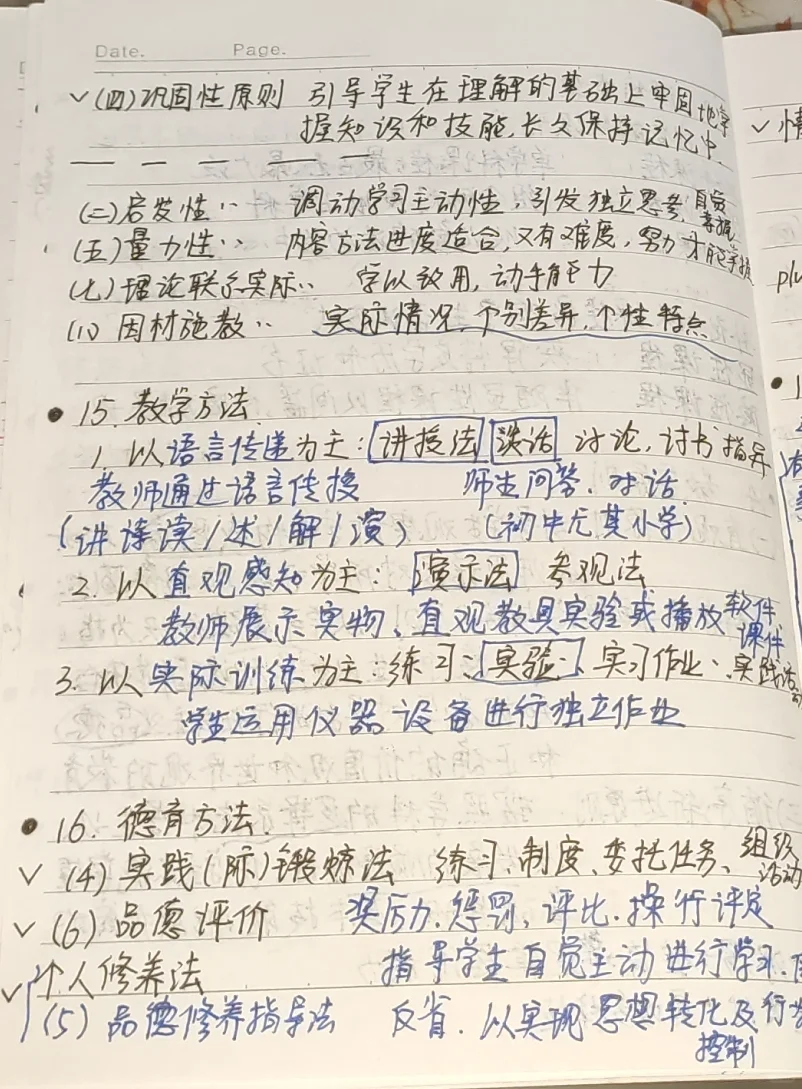 Date. Page.
✓(四)巩固性原则 引导学生在理解的基础上牢固地掌
握知识和技能,长久保持记忆中.
(二)启发性〃 调动学习主动性,引发独立思考,自觉掌握
(五)量力性〃 内容方法进度适合,又有难度,努力才能掌握
(七)理论联系实际〃 学以致用,动手能力
(八)因材施教〃 实际情况,个别差异,个性特点
• 15.教学方法
1.以语言传递为主:讲授法 谈话 讨论,读书指导
教师通过语言传授 师生问答、对话
(讲读/述/解/演) (初中尤其小学)
2.以直观感知为主:演示法 参观法
教师展示实物、直观教具实验或播放软件课件
3.以实际训练为主:练习、实验、实习作业、实践活动
学生运用仪器设备进行独立作业
• 16.德育方法.
✓(4)实践(际)锻炼法 练习、制度、委托任务、组织活动
✓(6)品德评价 奖励、惩罚、评比、操行评定
✓个人修养法 指导学生自觉主动进行学习、自
(5)品德修养指导法 反省.以实现思想转化及行为
控制
✓情
plu